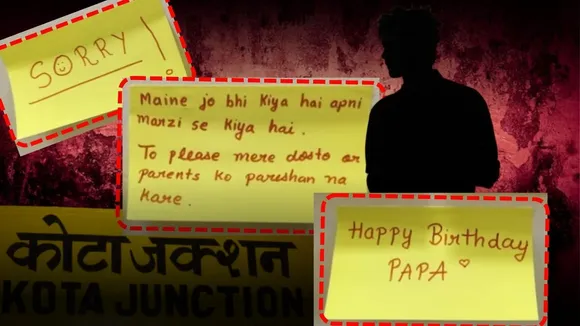 SORRY!
Maine jo bhi kiya hai apni
marzi se kiya hai.
To please mere dosto or
parents ko pareshan na
kare.
Happy Birthday
PAPA
कोटा जंक्शन
KOTA JUNCTION